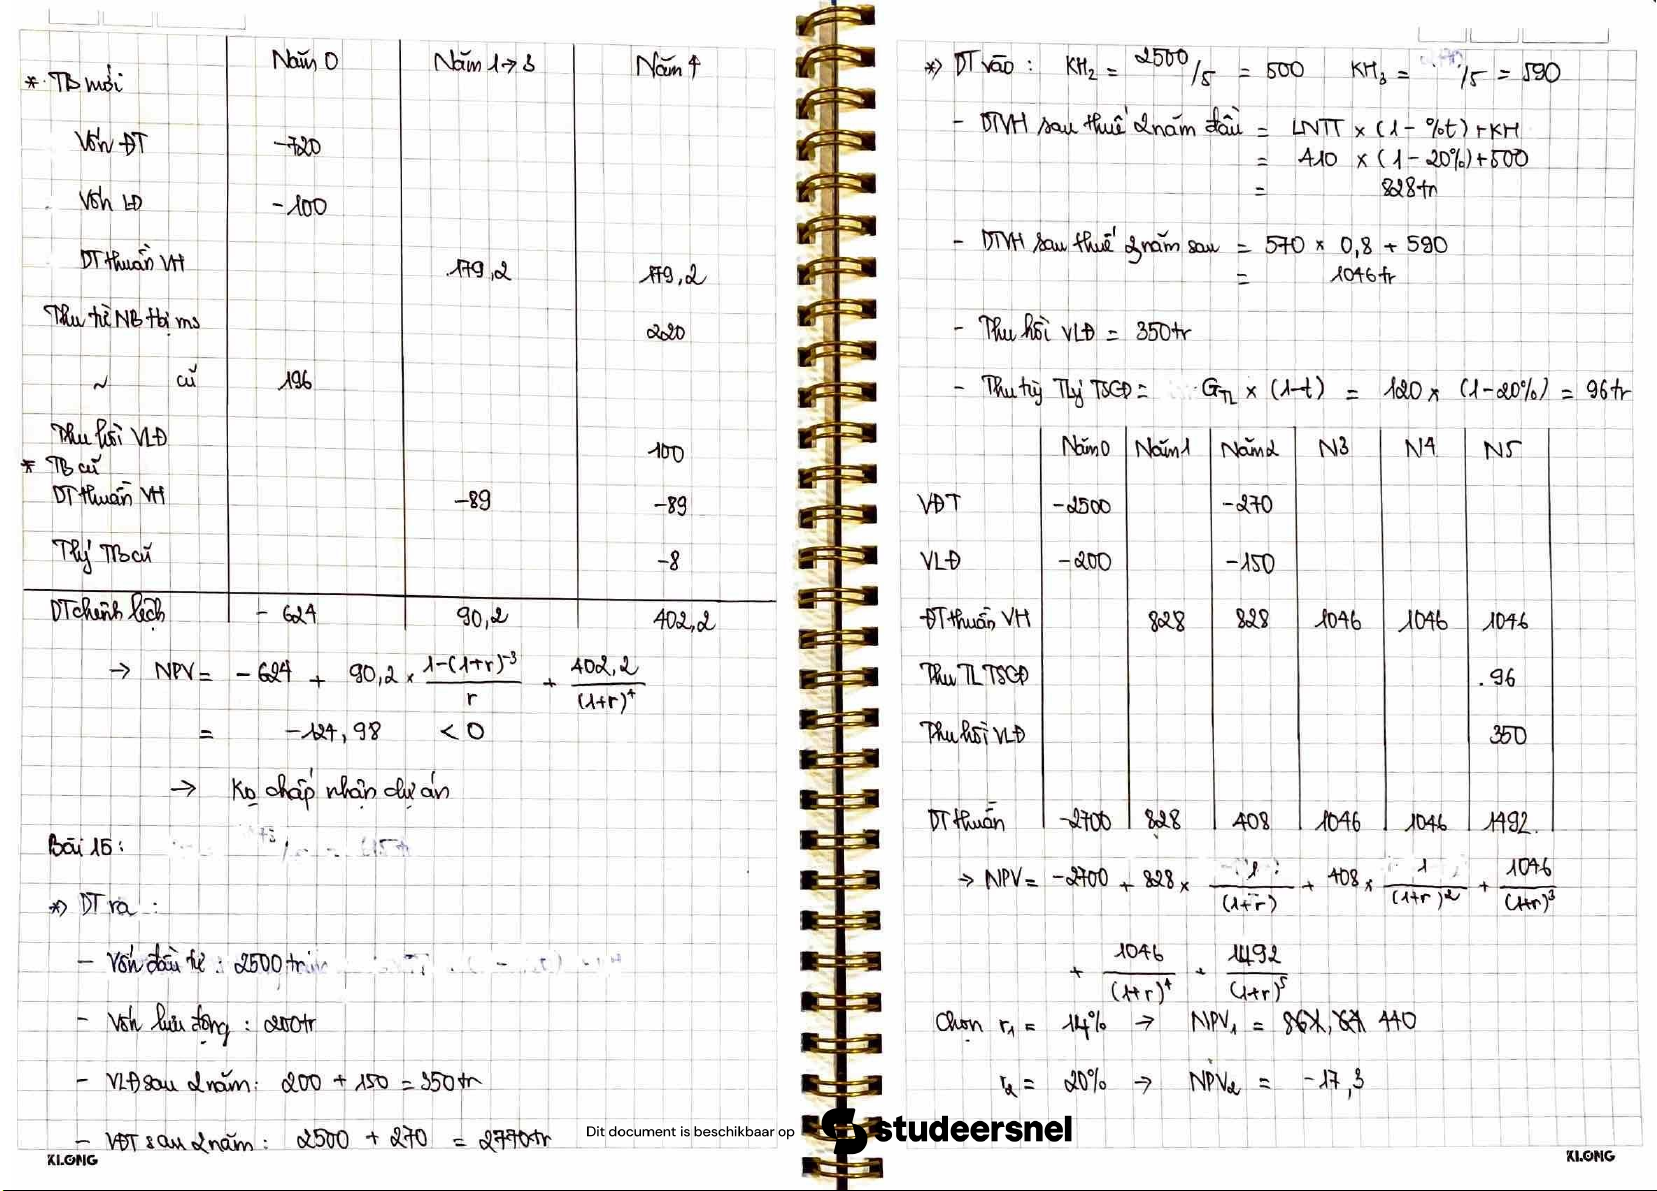 Năm 0 Năm 1→3 Năm 4
* TB mới
Vốn ĐT -720
Vốn LĐ -100
DT thuần VH 179,2 179,2
Thu từ NB tbị ms 220
~ cũ 196
Thu hồi VLĐ 100
* TB cũ
DT thuần VH -89 -89
Tlý TB cũ -8
DT chênh lệch -624 90,2 402,2
→ NPV = -624 + 90,2 × 1-(1+r)^-3 / r + 402,2 / (1+r)^4
= -124,98 < 0
→ Ko chấp nhận dự án
Bài 15:
*) DT ra :
- Vốn đầu tư : 2500tr
- Vốn lưu động : 200tr
- VLĐ sau 2 năm: 200 + 150 = 350tr
- VĐT sau 2 năm: 2500 + 270 = 2770tr
KLONG
*) DT vào : KH2 = 2500/5 = 500 KH3 = /5 = 590
- DTVH sau thuế 2 năm đầu = LNTT × (1 - %t) + KH
= 410 × (1 - 20%) + 500
= 828tr
- DTVH sau thuế 3 năm sau = 570 × 0,8 + 590
= 1046tr
- Thu hồi VLĐ = 350tr
- Thu từ Tlý TSCĐ = GTL × (1-t) = 120 × (1-20%) = 96tr
Năm 0 Năm 1 Năm 2 N3 N4 N5
VĐT -2500 -270
VLĐ -200 -150
ĐT thuần VH 828 828 1046 1046 1046
Thu TL TSCĐ 96
Thu hồi VLĐ 350
DT thuần -2700 828 408 1046 1046 1492
→ NPV = -2700 + 828 × 1 / (1+r) + 408 × 1 / (1+r)^2 + 1046 / (1+r)^3
+ 1046 / (1+r)^4 + 1492 / (1+r)^5
Chọn r1 = 14% → NPV1 = 440
r2 = 20% → NPV2 = -17,3
Dit document is beschikbaar op studeersnel
KLONG